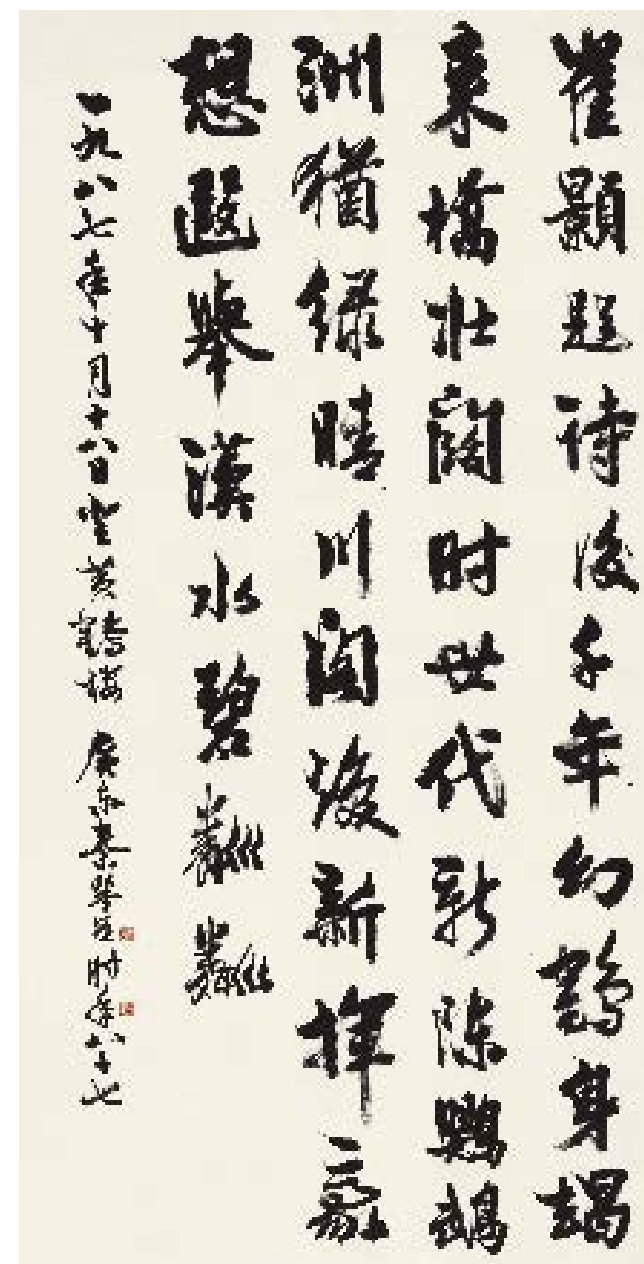 崔顥題詩後千年幻鶴身朅
来橋壮闊时世代新陳鸚鵡
洲猶緑晴川閣焕新揮毫
想遐舉漢水碧粼粼
一九八七年十月十八日登黄鶴楼 廣东秦咢生时年八十七